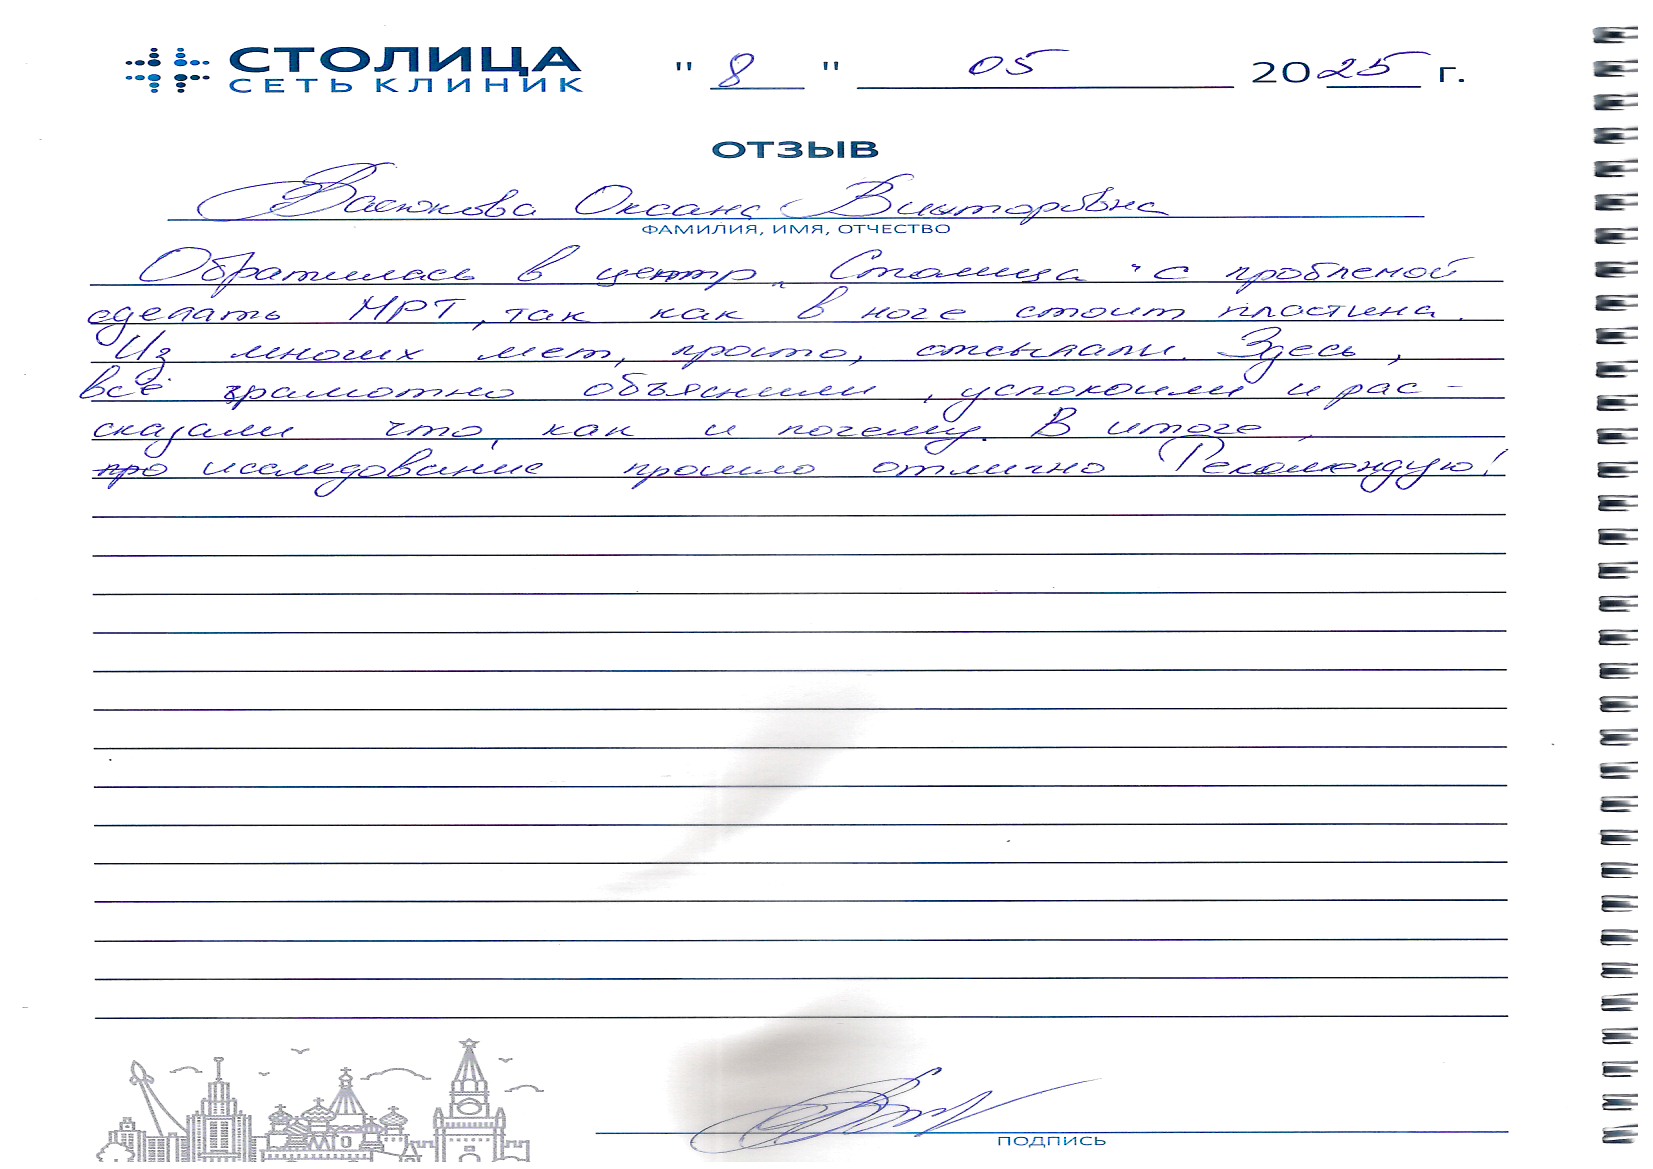 СТОЛИЦА
СЕТЬ КЛИНИК
" 8 " 05 2025 г.
ОТЗЫВ
Васюкова Оксана Викторовна
ФАМИЛИЯ, ИМЯ, ОТЧЕСТВО
Обратилась в центр „Столица" с проблемой
сделать МРТ, так как в ноге стоит пластина.
Из многих мет, просто, отсылали. Здесь,
всё грамотно объяснили, успокоили и рас-
сказали что, как и почему. В итоге,
про исследование прошло отлично Рекомендую!
ПОДПИСЬ